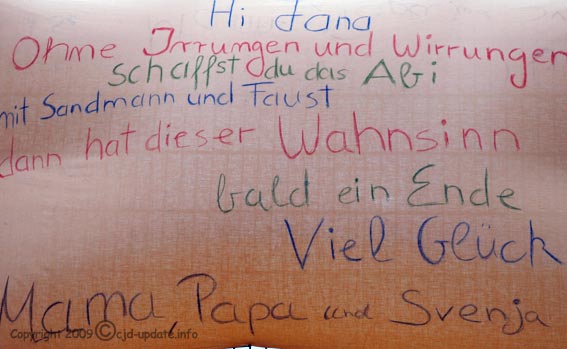 Hi Jana
Ohne Irrungen und Wirrungen
schaffst du das Abi
mit Sandmann und Faust
dann hat dieser Wahnsinn
bald ein Ende
Viel Glück
Mama, Papa und Svenja
Copyright 2009 © cjd-update.info